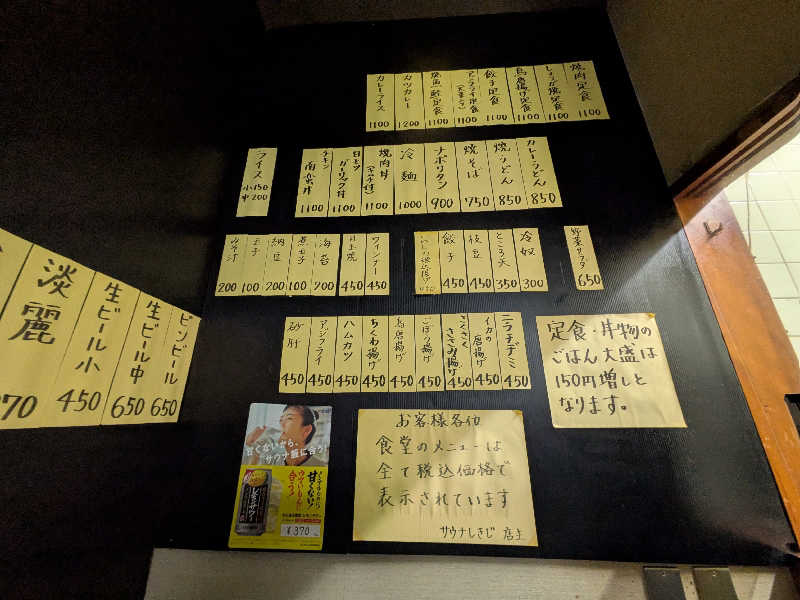 焼肉定食 1100
しょうが焼定食 1100
鳥唐揚げ定食 1100
餃子定食 1100
アジフライ定食 1100
焼魚定食 1100
カツカレー 1200
カレーライス 1100
カレーうどん 850
焼うどん 850
焼そば 750
ナポリタン 900
冷麺 1000
焼肉丼
(キムチ付) 1100
ガーリック丼 1100
チキン
南蛮丼 1100
ライス 小150
中200
野菜サラダ 650
冷奴 300
ところ天 350
枝豆 450
餃子 450
ウィンナー 450
目玉焼 450
海苔 200
煮玉子 100
納豆 200
玉子 100
みそ汁 200
ニラチヂミ 450
イカの
唐揚げ 450
さくさく
ささみ揚げ 450
ごぼう揚げ 450
鳥唐揚げ 450
ちくわ揚げ 450
ハムカツ 450
アジフライ 450
砂肝 450
ビンビール 650
生ビール中 650
生ビール小 450
淡麗
定食・丼物の
ごはん大盛は
150円増しと
なります。
甘くないから、
サウナ飯に合う!
甘くない!
¥370
お客様各位
食堂のメニューは
全て税込価格で
表示されています
サウナしきじ 店主